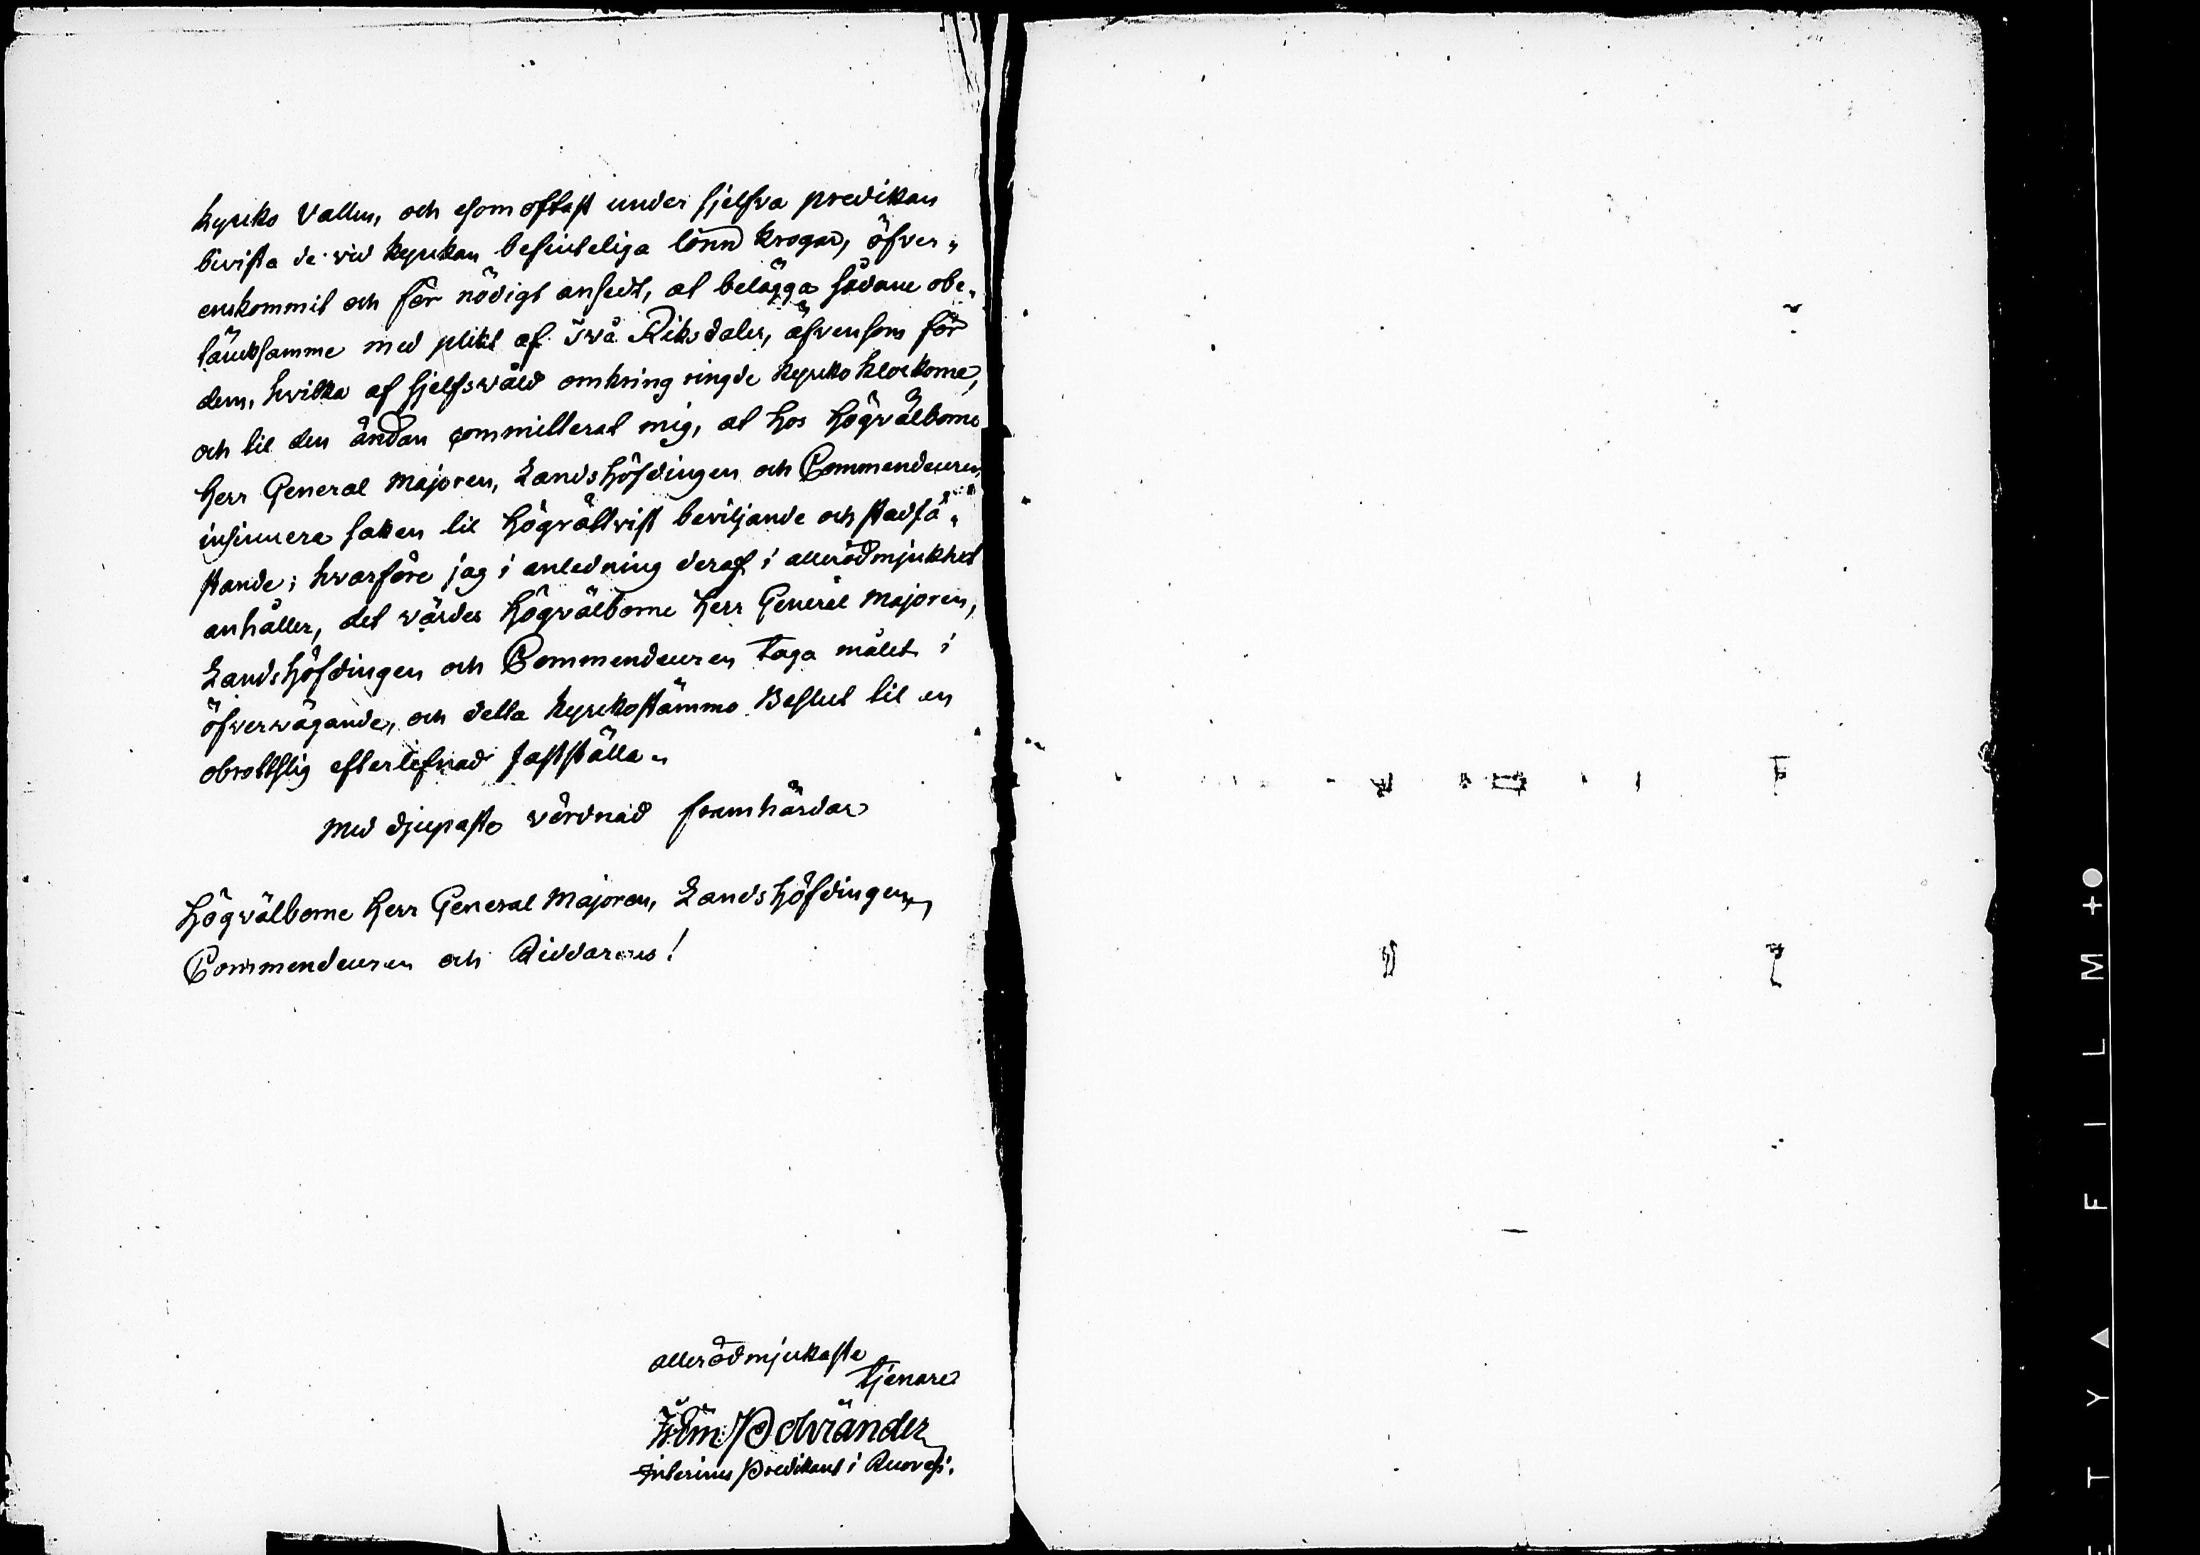 kyrko Vallen, och esomoftast under sjelfva predikan
bevista de vid kyrkan befinteliga lönn krogar, öfver„
enskommit och för nödigt ansedt, at belägga sådane obe„
tänksamme med plikt af Två Riksdaler, äfvensom för
dem, hvilka af sjelfsvåld omkring ringde kyrko klockorne,
och til den ändan committerat mig, at hos Högvälborne
Herr General Majoren, Landshöfdingen och Commendeuren
insinuera saken til högrättvist beviljande och stadfä„
stande; hvarföre jag i anledning deraf i allerödmjukhet
anhåller, det värdes Högvälborne Herr General Majoren,
Landshöfdingen och Commendeuren taga målet i
öfvervägande, och detta kyrkostämmo Beslut til en
obrottslig efterlefnad fastställa.
Med djupaste vördnad framhärdar
Högvälborne Herr General Majoren, Landshöfdingen,
Commendeuren och Riddarens!
allerödmjukaste
tjenare
Polviander
Interims Predikant i Ruovesi.
T Y ▲ F I L M